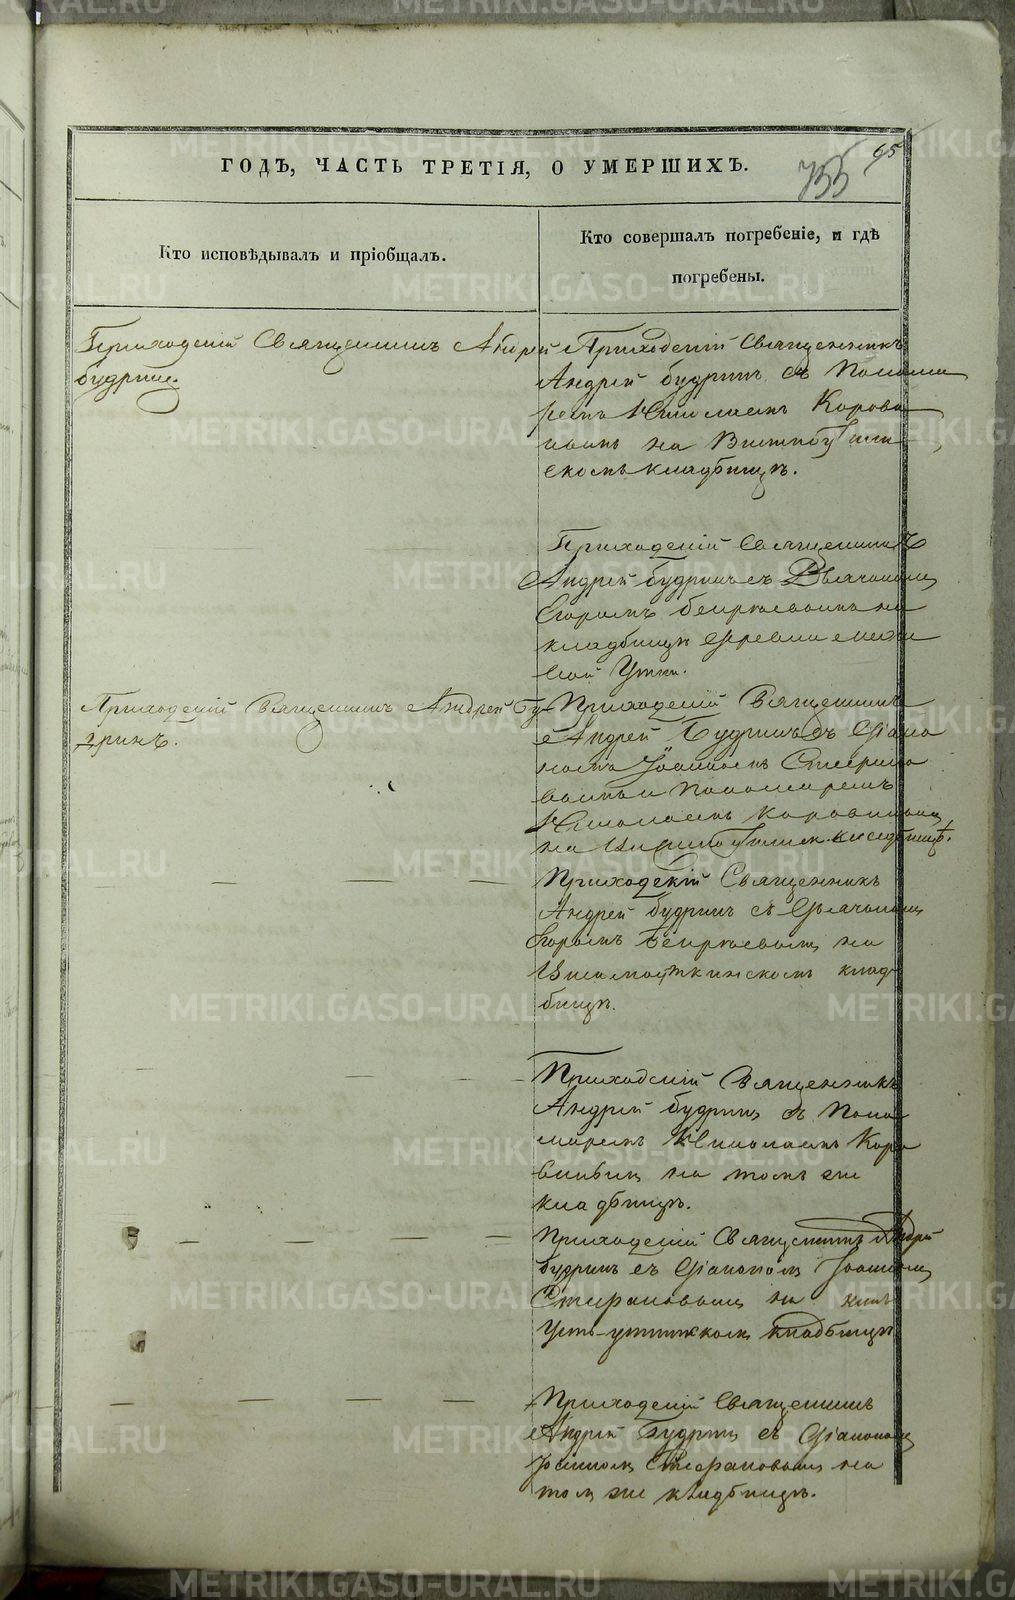 ГОДЪ, ЧАСТЬ ТРЕТІЯ, О УМЕРШИХЪ.
755
65
Кто исповѣдывалъ и пріобщалъ.
Кто совершалъ погребеніе, и гдѣ
погребены.
Приходскій Священникъ Андрей
Будринъ.
Приходскій Священникъ
Андрей Будринъ съ Понома
ремъ Николаемъ Корови
нымъ на
скомъ кладбищѣ.
Приходскій Священникъ
Андрей Будринъ съ Дьячкомъ
Егоромъ на
кладбищѣ деревни
Утки.
Приходскій Священникъ Андрей Бу-
дринъ.
Приходскій Священникъ
Андрей Будринъ съ Діако
номъ Іоанномъ Стефано
вымъ и Пономаремъ
Николаемъ Коровинымъ
на кладбищѣ.
Приходскій Священникъ
Андрей Будринъ съ Дьячкомъ
Егоромъ на
кладбищѣ.
Приходскій Священникъ
Андрей Будринъ съ Поно
маремъ Николаемъ Коро
винымъ на томъ же
кладбищѣ.
Приходскій Священникъ Андрей
Будринъ съ Діакономъ Іоанномъ
Стефановымъ на
Усть-Уткинскомъ кладбищѣ
Приходскій Священникъ
Андрей Будринъ съ Діакономъ
Іоанномъ Стефановымъ на
томъ же кладбищѣ.
METRIKI.GASO-URAL.RU